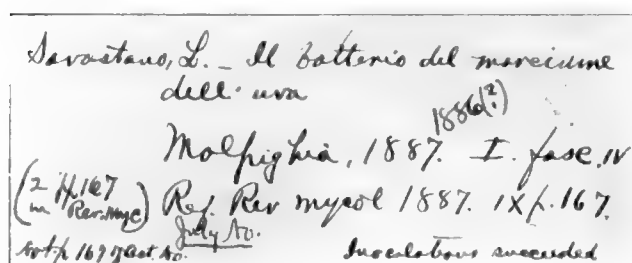 Savastano, L. - Il batterio del marciume
dell' uva
1886(?)
Malpighia, 1887. I. fasc. IV
(2 pp. 167 in Rev. Myc) Ref. Rev mycol 1887. IX p. 167.
July No.
Not p. 169 of Oct. No. Inoculations succeeded